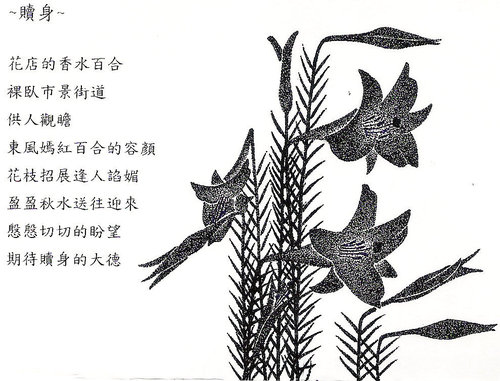 ~贖身~
花店的香水百合
裸臥市景街道
供人觀瞻
東風嫣紅百合的容顏
花枝招展逢人諂媚
盈盈秋水送往迎來
慇慇切切的盼望
期待贖身的大德